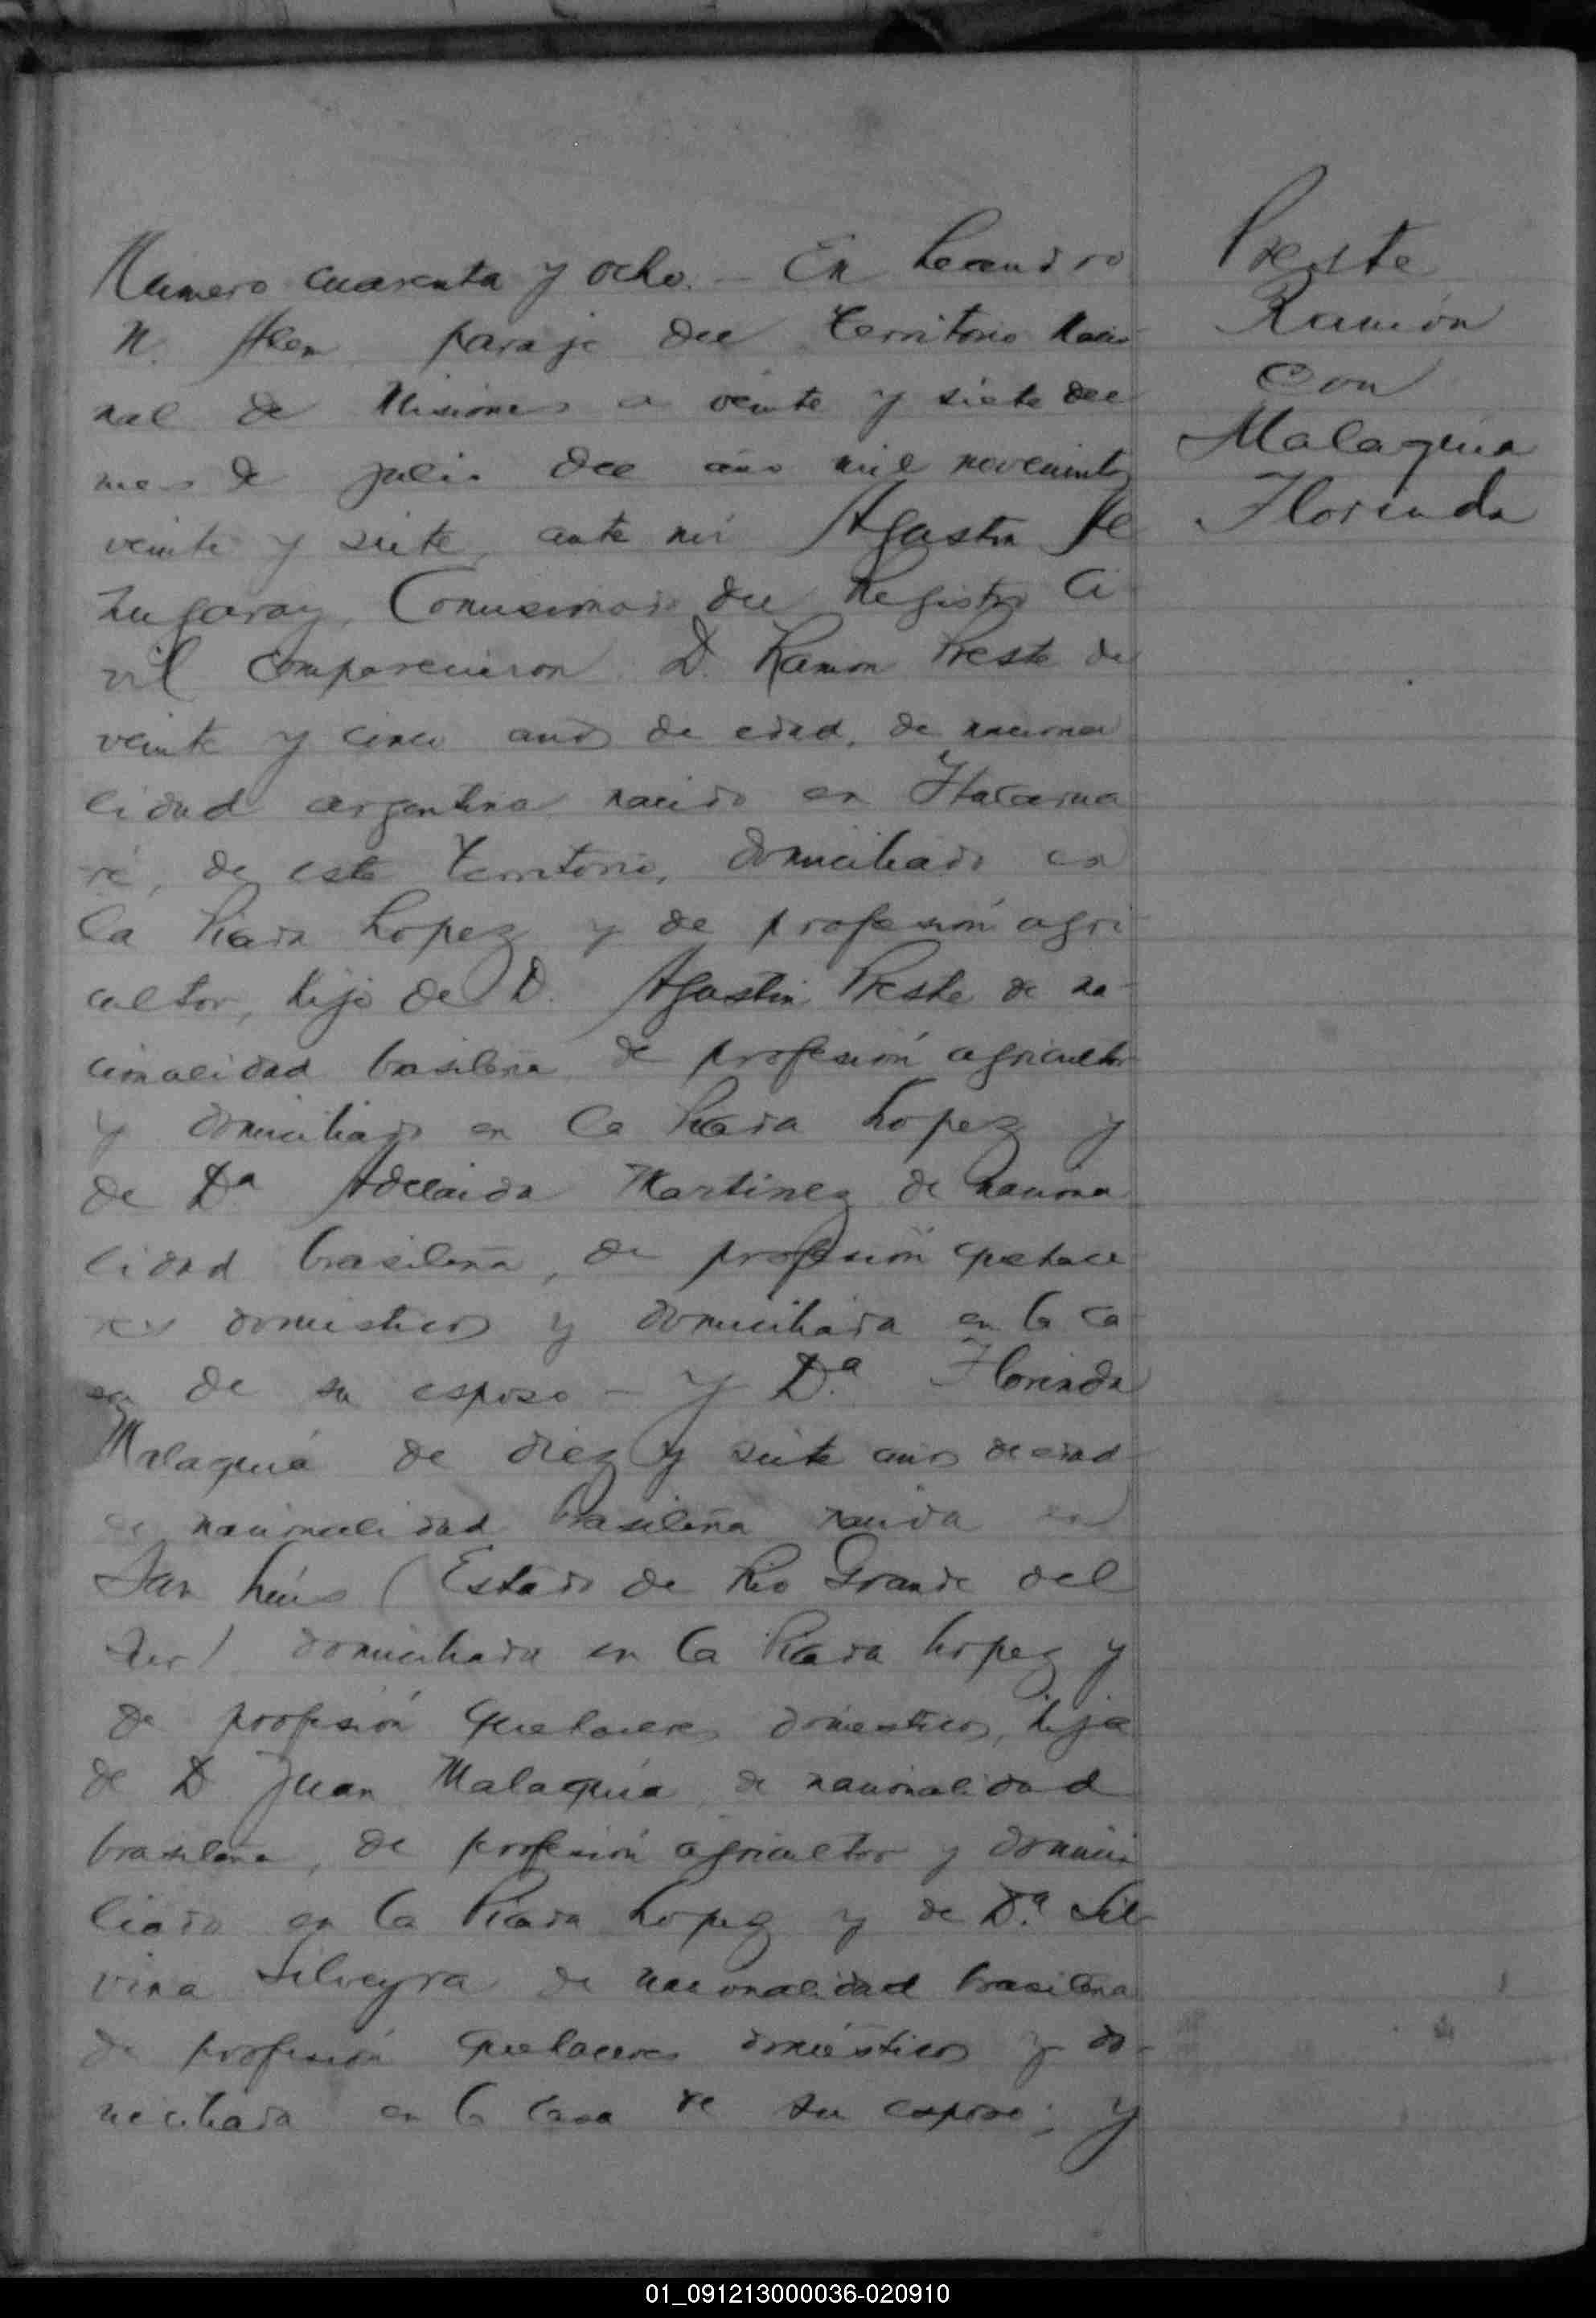 Preste
Ramón
con
Malaquia
Florinda
Número cuarenta y ocho. — En Leandro
N. Alen paraje del Territorio Nacio-
nal de Misiones a veinte y siete del
mes de julio del año mil novecientos
veinte y siete, ante mí Agustin
Comisionado del Registro Ci-
vil comparecieron D. Ramon Preste de
veinte y cinco años de edad, de naciona
lidad argentina nacido en Itacarua
ré, de este Territorio, domiciliado en
la Picada Lopez y de profesión agri
cultor, hijo de D. Agustin Preste de na-
cionalidad brasileña de profesión agricultor
y domiciliado en la Picada Lopez y
de Dª Adelaida Martinez de naciona
lidad brasileña, de profesión quehace
res domésticos y domiciliada en la ca
sa de su esposo — y D.ª Florinda
Malaquia de diez y siete años de edad
de nacionalidad brasileña nacida en
San Luis (Estado de Rio Grande del
Sur) domiciliada en la Picada Lopez y
de profesión quehaceres domesticos, hija
de D Juan Malaquia, de nacionalidad
brasileña, de profesión agricultor y domici
liado en la Picada Lopez y de D.ª Sil-
vina Silveyra de nacionalidad brasileña
de profesión quehaceres domésticos y do-
miciliada en la casa de su esposo; y
01_091213000036-020910